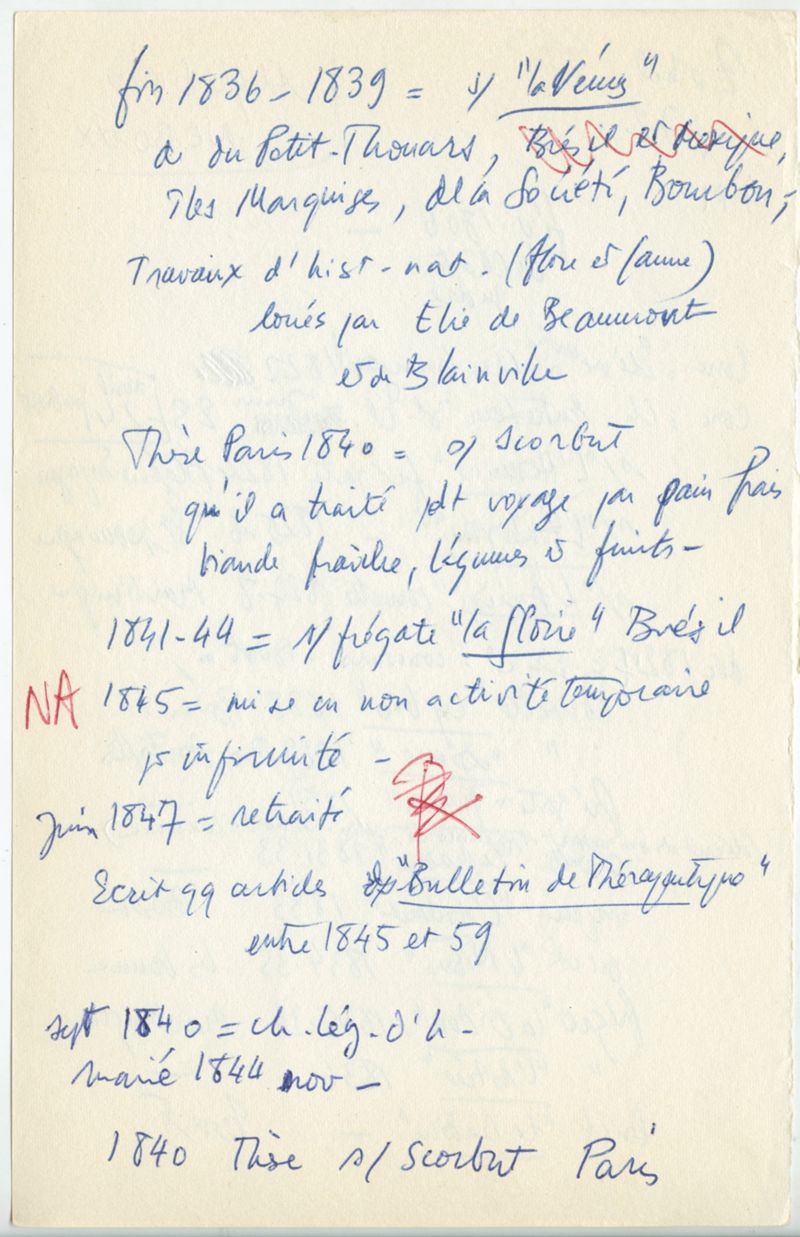 fin 1836 - 1839 = s/ "la Vénus"
a du Petit-Thouars, Brésil et Mexique,
Iles Marquises, de la Société, Bourbon,
Travaux d'hist-nat. (flore et faune)
loués par Elie de Beaumont
et de Blainville
Thèse Paris 1840 = s/ Scorbut
qu'il a traité pdt voyage par pain frais
viande fraîche, légumes et fruits -
1841-44 = s/ frégate "la Gloire" Brésil
NA 1845 = mise en non activité temporaire
pr infirmité -
Juin 1847 = retraité
Ecrit qq articles "Bulletin de Thérapeutique"
entre 1845 et 59
sept 1840 = ch. lég. d'h -
marié 1844 nov -
1840 Thèse s/ Scorbut Paris